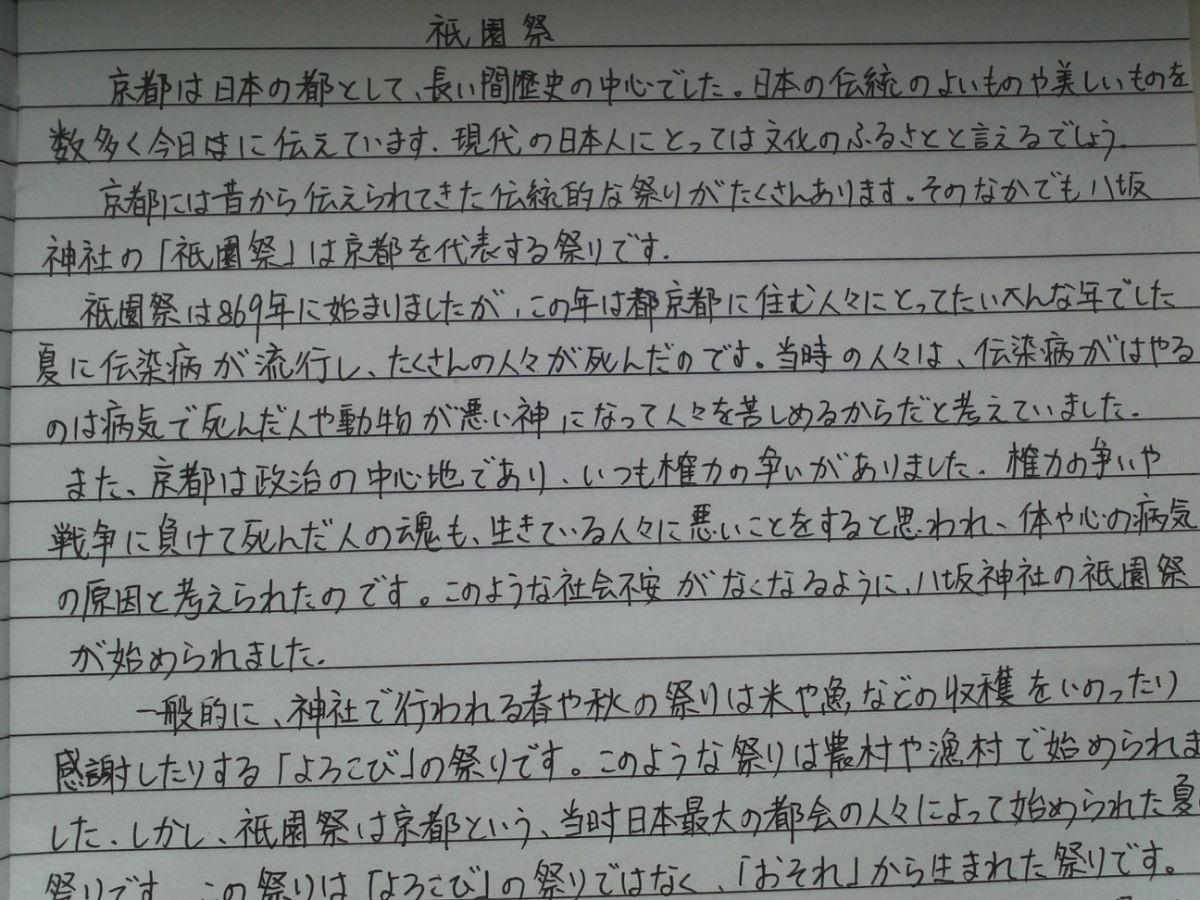 祇園祭
京都は日本の都として、長い間歴史の中心でした。日本の伝統のよいものや美しいものを
数多く今日はに伝えています. 現代の日本人にとっては文化のふるさとと言えるでしょう.
京都には昔から伝えられてきた伝統的な祭りがたくさんあります。そのなかでも八坂
神社の「祇園祭」は京都を代表する祭りです.
祇園祭は869年に始まりましたが、この年は都京都に住む人々にとってたいへんな年でした
夏に伝染病が流行し、たくさんの人々が死んだのです。当時の人々は、伝染病がはやる
のは病気で死んだ人や動物が悪い神になって人々を苦しめるからだと考えていました.
また、京都は政治の中心地であり、いつも権力の争いがありました. 権力の争いや
戦争に負けて死んだ人の魂も、生きている人々に悪いことをすると思われ、体や心の病気
の原因と考えられたのです。このような社会不安がなくなるように、八坂神社の祇園祭
が始められました.
一般的に、神社で行われる春や秋の祭りは米や魚などの収穫をいのったり
感謝したりする「よろこび」の祭りです。このような祭りは農村や漁村で始められま
した、しかし、祇園祭は京都という、当时日本最大の都会の人々によって始められた夏
祭りです この祭りは「よろこび」の祭りではなく、「おそれ」から生まれた祭りです。